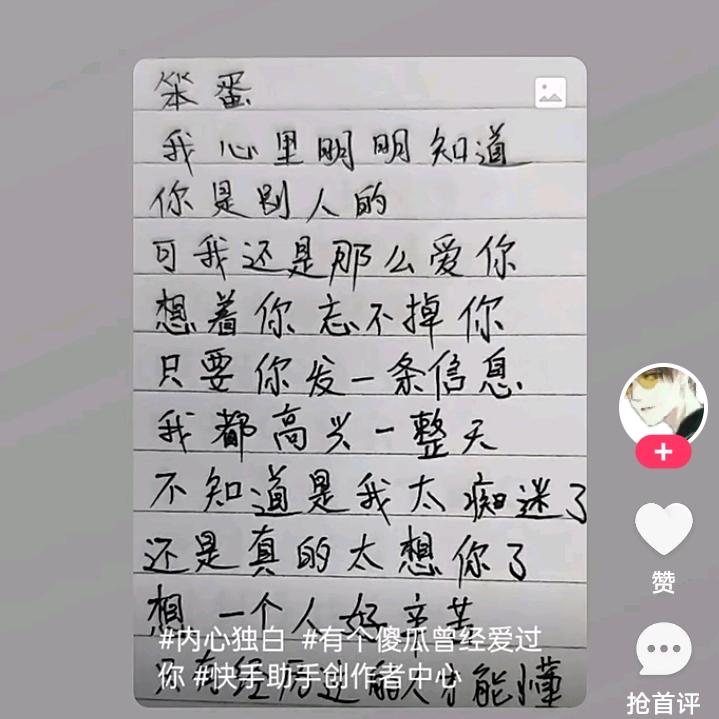 笨蛋
我心里明明知道
你是别人的
可我还是那么爱你
想着你忘不掉你
只要你发一条信息
我都高兴一整天
不知道是我太痴迷了
还是真的太想你了
想一个人好辛苦
只有经历过的人才能懂
#内心独白 #有个傻瓜曾经爱过
你 #快手助手创作者中心
赞
抢首评